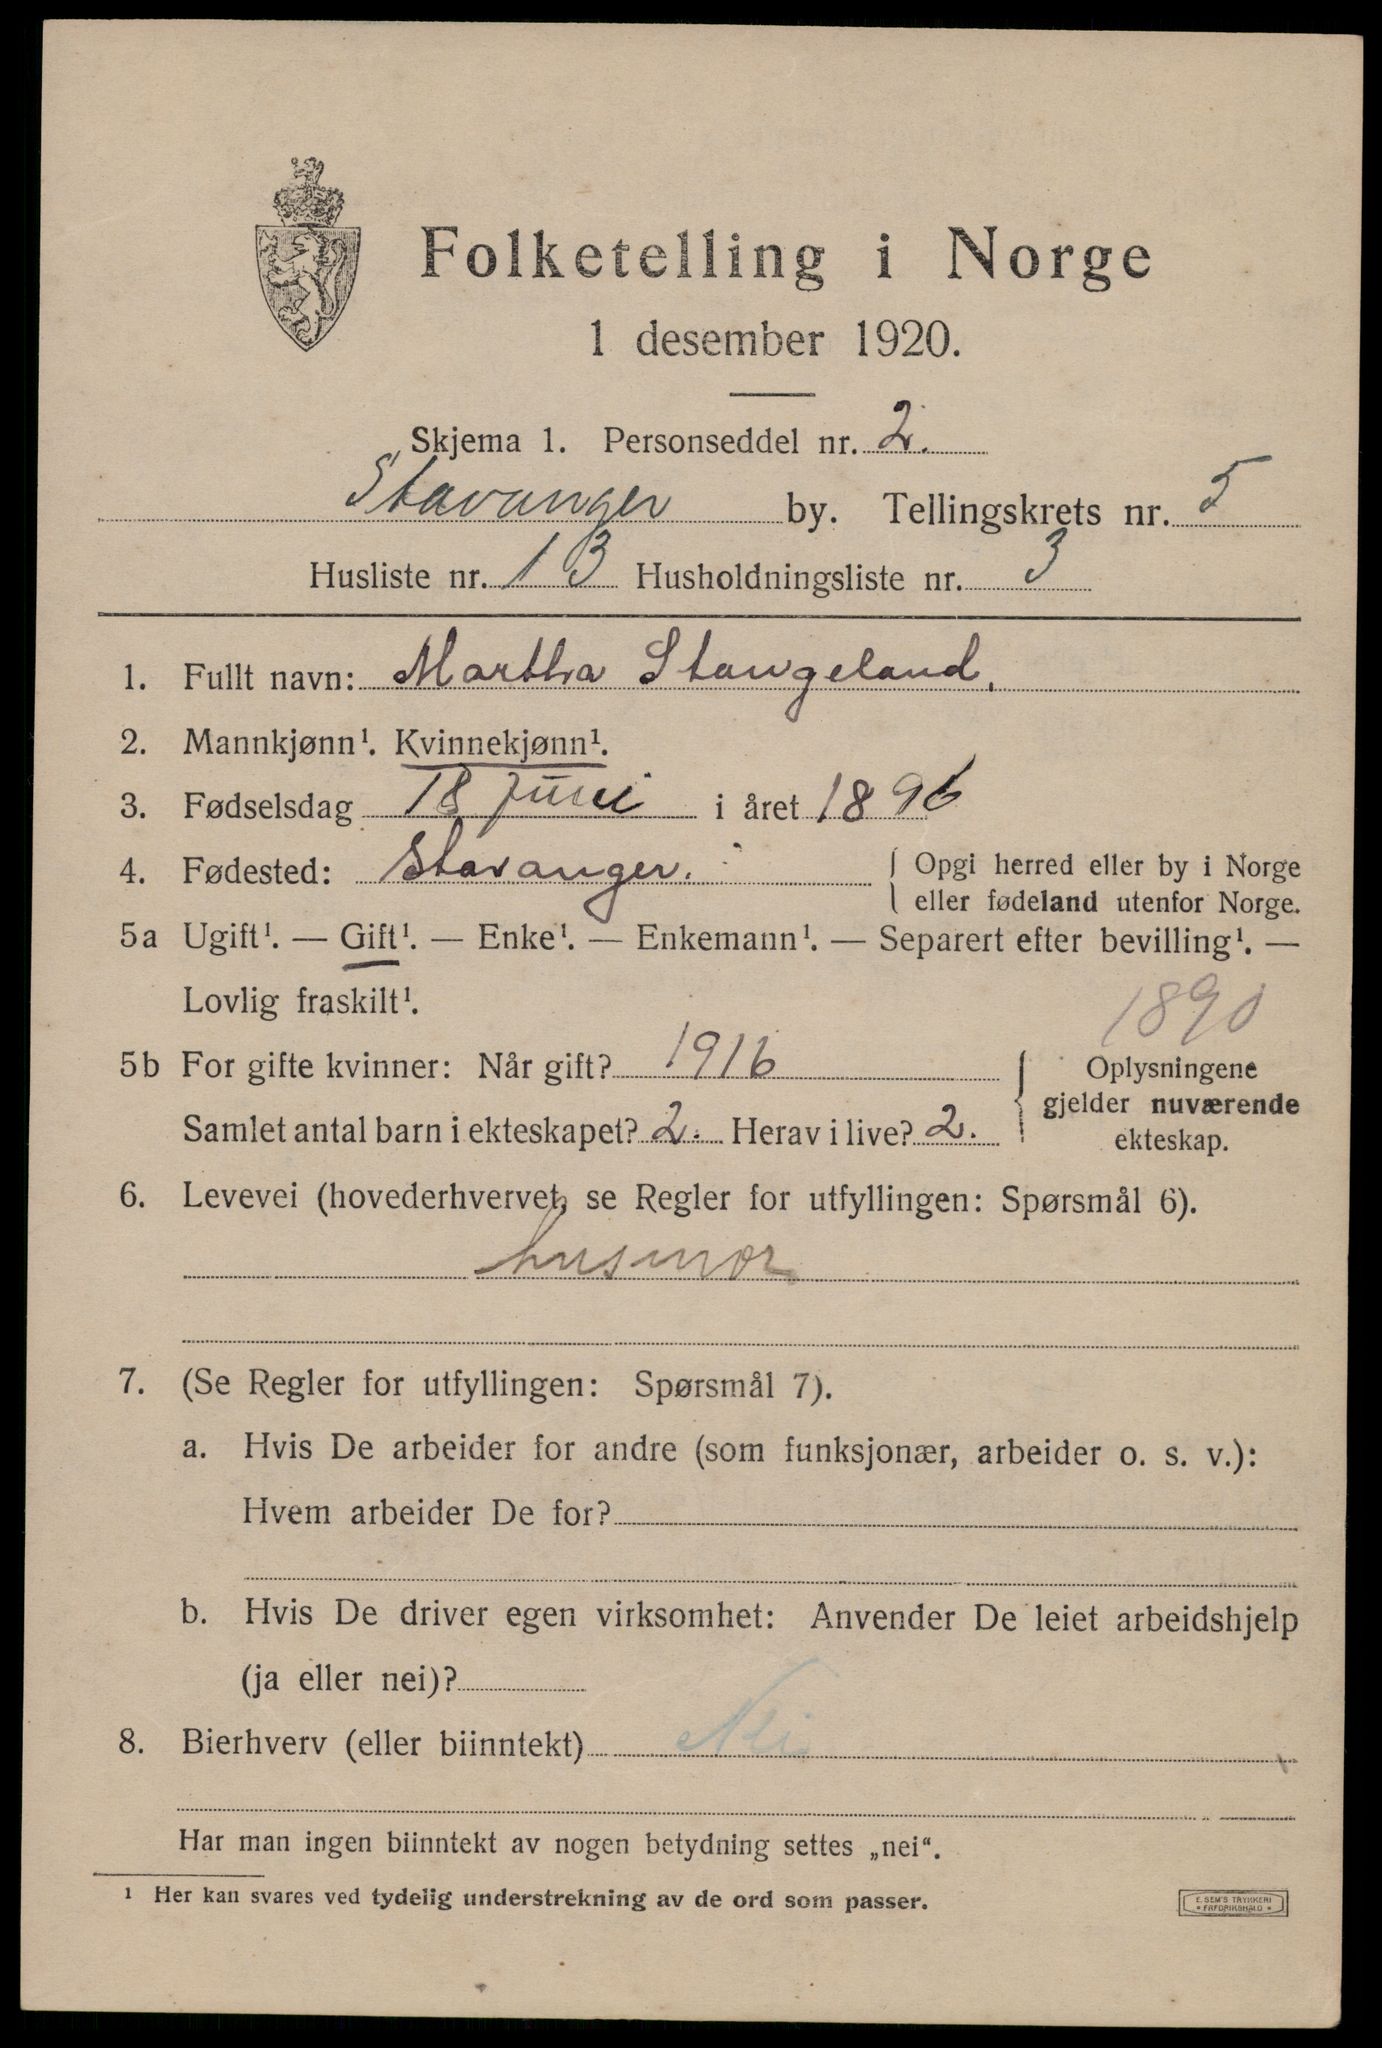 Folketelling i Norge
1 desember 1920.
Skjema 1. Personseddel nr. 2.
Stavanger by. Tellingskrets nr. 5
Husliste nr. 13 Husholdningsliste nr. 3
1. Fullt navn: Martha Stangeland.
2. Mannkjønn¹. Kvinnekjønn¹.
3. Fødselsdag 18 Juni i året 1896
4. Fødested: Stavanger. Opgi herred eller by i Norge
eller fødeland utenfor Norge.
5a Ugift¹. — Gift¹. — Enke¹. — Enkemann¹. — Separert efter bevilling¹. —
Lovlig fraskilt¹. 1890
5b For gifte kvinner: Når gift? 1916
Samlet antal barn i ekteskapet? 2. Herav i live? 2.
Oplysningene
gjelder nuværende
ekteskap.
6. Levevei (hovederhvervet, se Regler for utfyllingen: Spørsmål 6).
husmor
7. (Se Regler for utfyllingen: Spørsmål 7).
a. Hvis De arbeider for andre (som funksjonær, arbeider o. s. v.):
Hvem arbeider De for?
b. Hvis De driver egen virksomhet: Anvender De leiet arbeidshjelp
(ja eller nei)?
8. Bierhverv (eller biinntekt) Nei
Har man ingen biinntekt av nogen betydning settes „nei“.
¹ Her kan svares ved tydelig understrekning av de ord som passer.
E. SEM'S TRYKKERI
* FREDRIKSHALD *